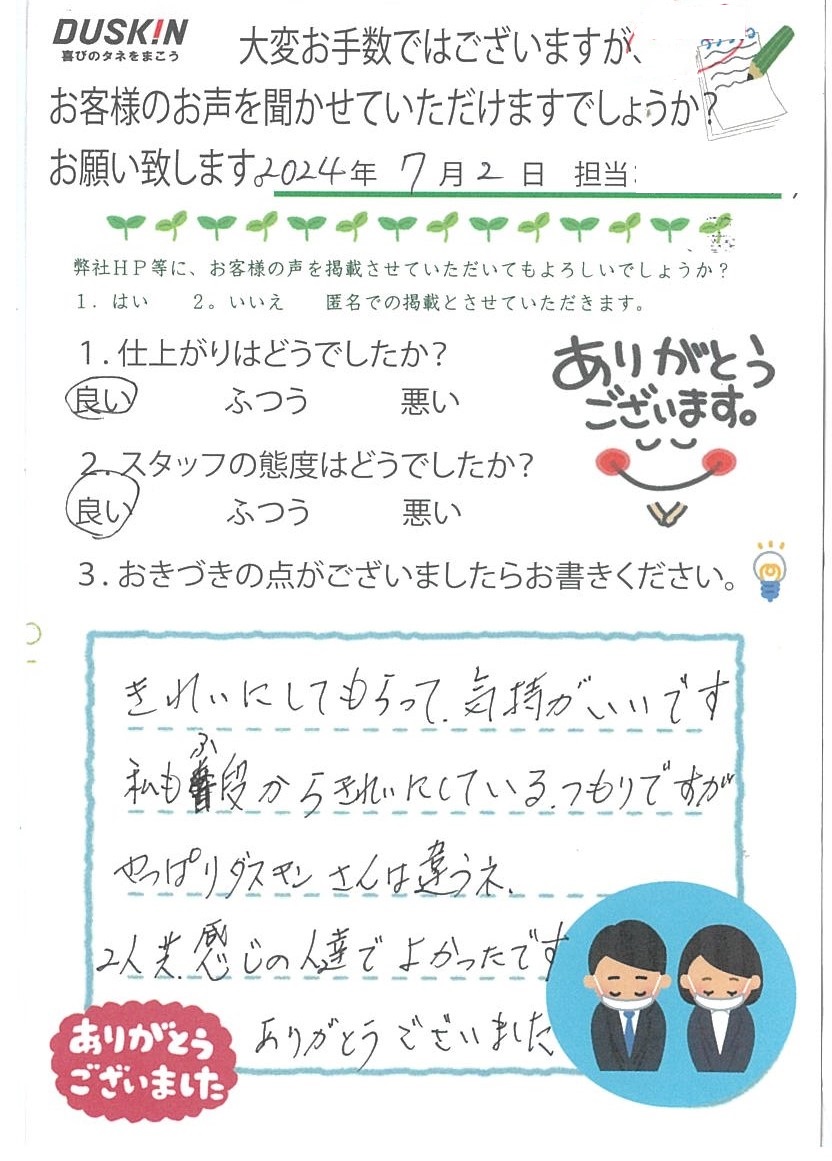 DUSKIN
喜びのタネをまこう
大変お手数ではございますが、
お客様のお声を聞かせていただけますでしょうか?
お願い致します。2024年 7月2日 担当:
弊社HP等に、お客様の声を掲載させていただいてもよろしいでしょうか?
1. はい 2。いいえ 匿名での掲載とさせていただきます。
1.仕上がりはどうでしたか?
良い ふつう 悪い
ありがとう
ございます。
2.スタッフの態度はどうでしたか?
良い ふつう 悪い
3.おきづきの点がございましたらお書きください。
きれいにしてもらって、気持がいいです
ふ
私も普段からきれいにしている、つもりですが
やっぱりダスキンさんは違うネ、
2人共、感じの人達でよかったです
ありがとうございました
ありがとう
ございました